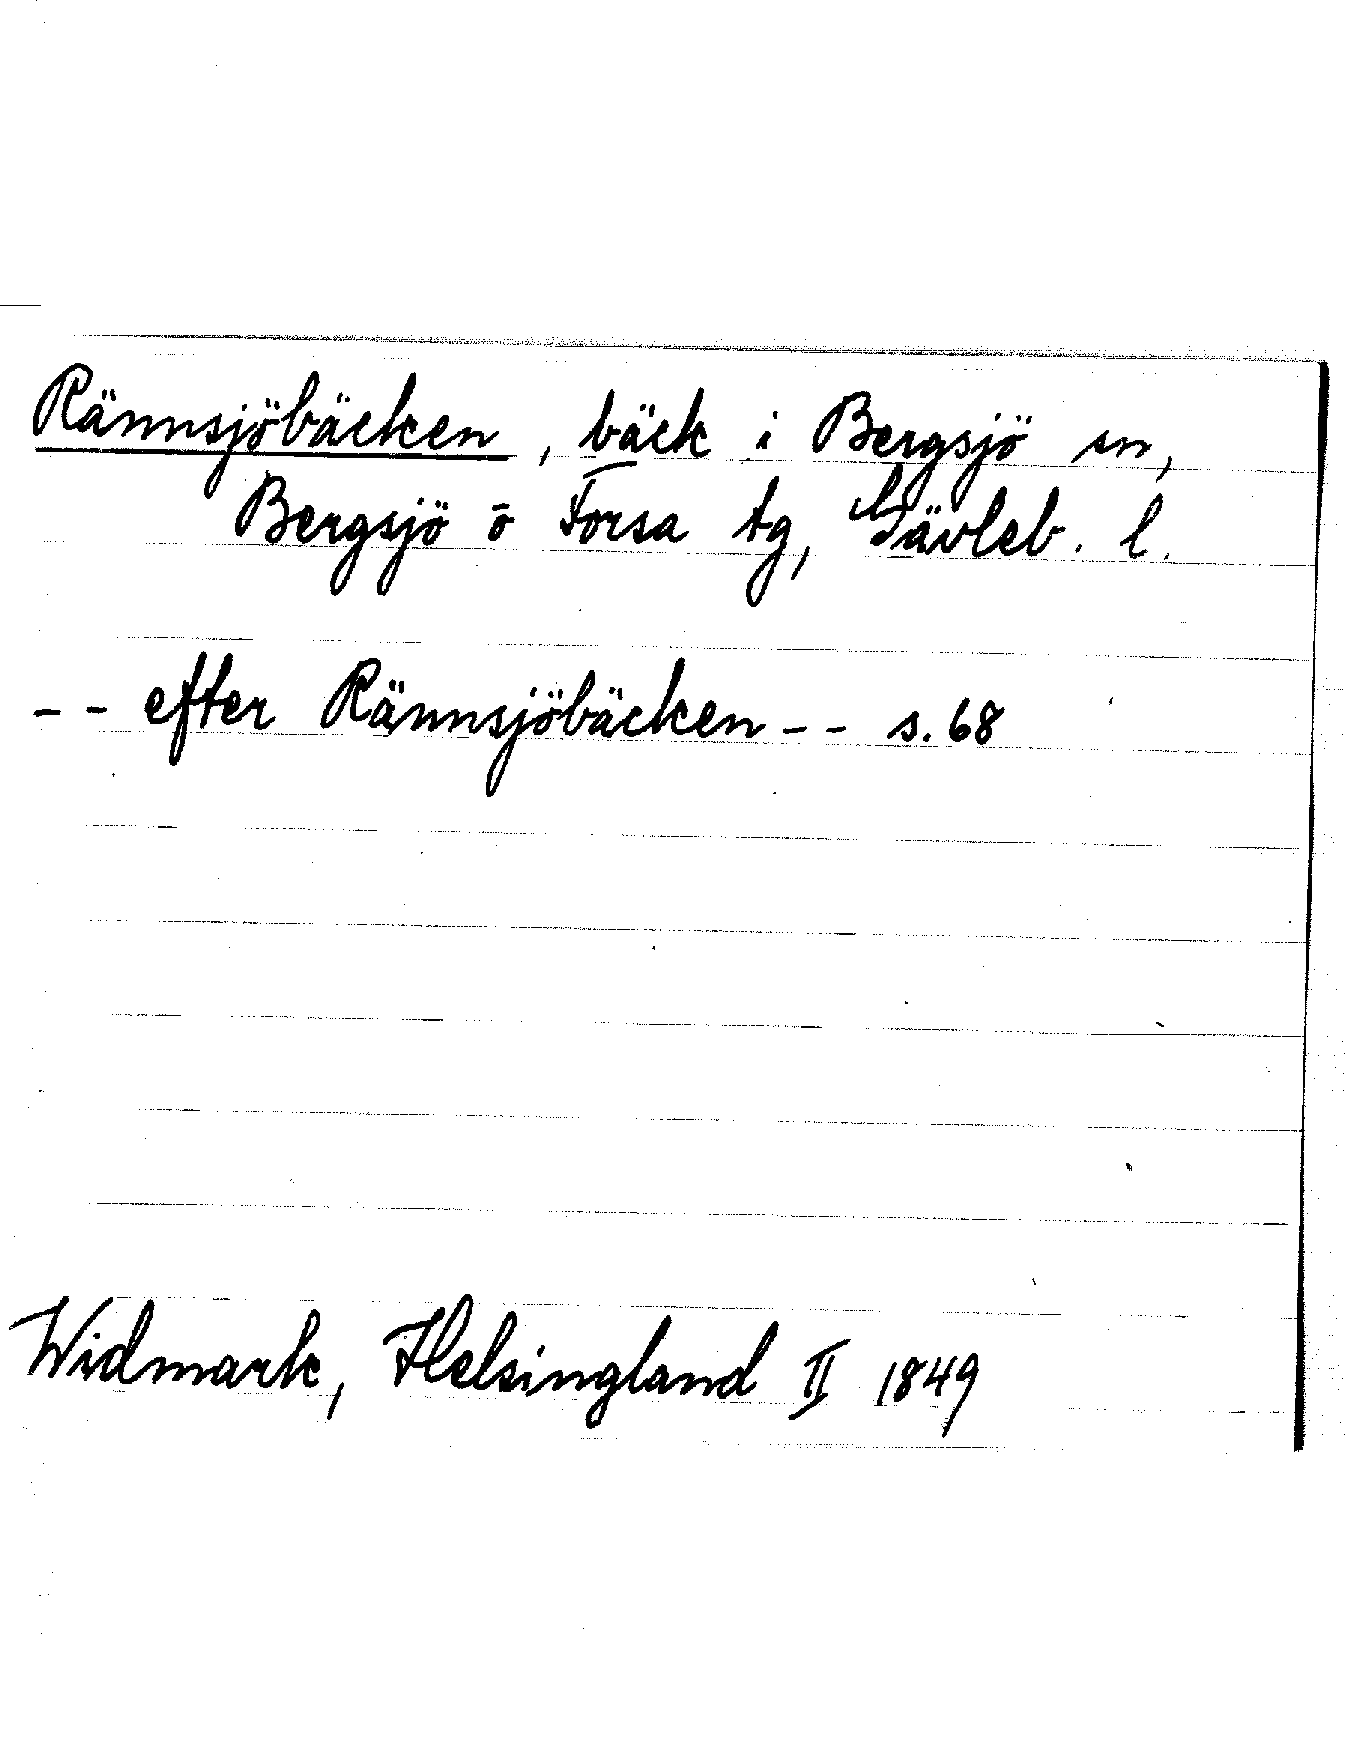 Rännsjöbäcken, bäck i Bergsjö sn,
Bergsjö o Forsa tg, Gävleb. l.
-- efter Rännsjöbäcken -- s. 68
Widmark, Helsingland II 1849